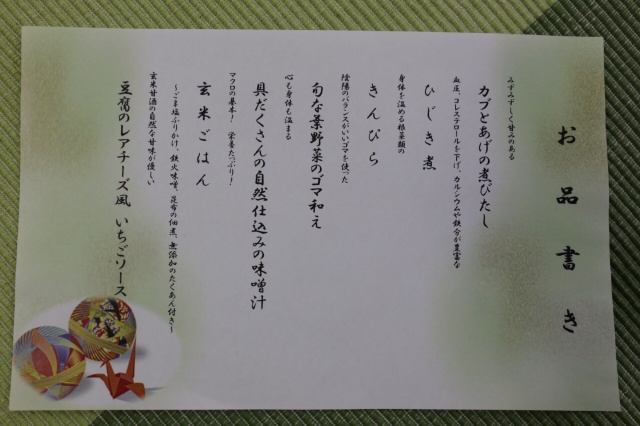 お品書き
みずみずしく甘みのある
カブとあげの煮びたし
血圧、コレステロールを下げ、カルシウムや鉄分が豊富な
ひじき煮
身体を温める根菜類の
きんぴら
陰陽のバランスがいいゴマを使った
旬な葉野菜のゴマ和え
心も身体も温まる
具だくさんの自然仕込みの味噌汁
マクロの基本！ 栄養たっぷり！
玄米ごはん
～ごま塩ふりかけ、鉄火味噌、昆布の佃煮、無添加のたくあん付き～
玄米甘酒の自然な甘味が優しい
豆腐のレアチーズ風 いちごソース